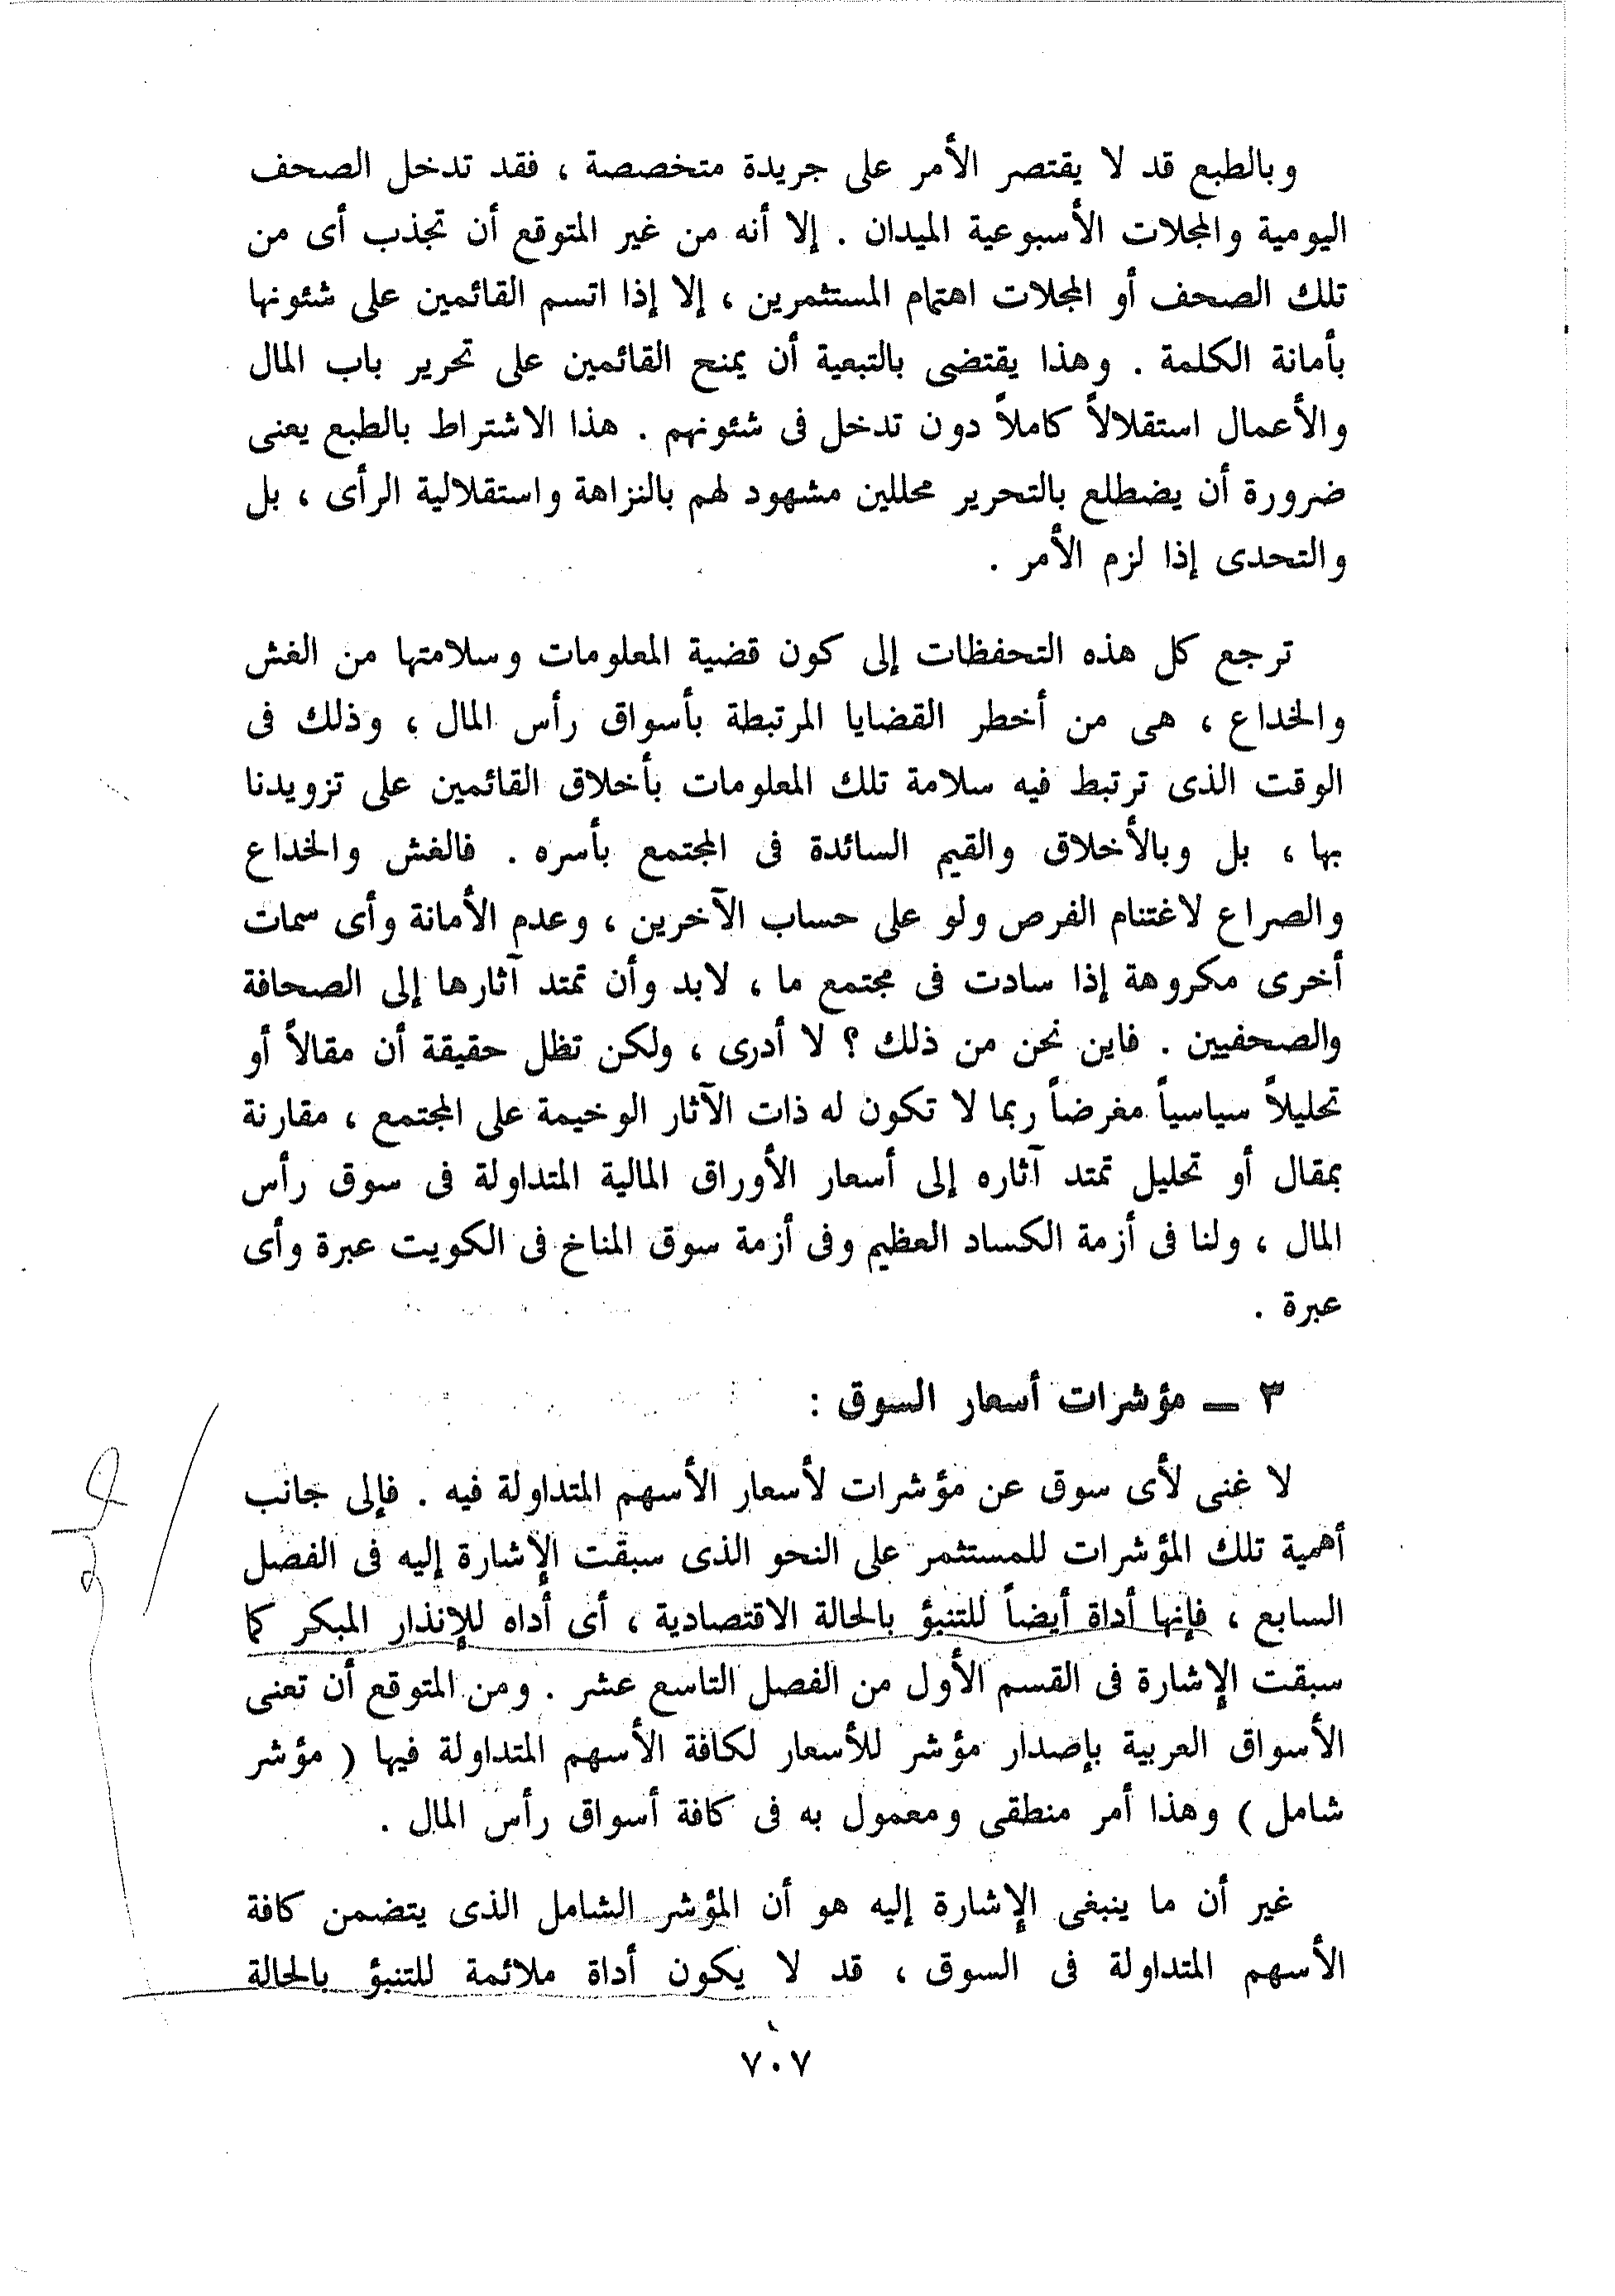 وبالطبع قد لا يقتصر الأمر على جريدة متخصصة ، فقد تدخل الصحف
اليومية والمجلات الأسبوعية الميدان . إلا أنه من غير المتوقع أن تجذب أى من
تلك الصحف أو المجلات اهتمام المستثمرين ، إلا إذا اتسم القائمين على شئونها
بأمانة الكلمة . وهذا يقتضى بالتبعية أن يمنح القائمين على تحرير باب المال
والأعمال استقلالاً كاملاً دون تدخل فى شئونهم . هذا الاشتراط بالطبع يعنى
ضرورة أن يضطلع بالتحرير محللين مشهود لهم بالنزاهة واستقلالية الرأى ، بل
والتحدى إذا لزم الأمر .
ترجع كل هذه التحفظات إلى كون قضية المعلومات وسلامتها من الغش
والخداع ، هى من أخطر القضايا المرتبطة بأسواق رأس المال ؛ وذلك فى
الوقت الذى ترتبط فيه سلامة تلك المعلومات بأخلاق القائمين على تزويدنا
بها ، بل وبالأخلاق والقيم السائدة فى المجتمع بأسره . فالغش والخداع
والصراع لاغتنام الفرص ولو على حساب الآخرين ، وعدم الأمانة وأى سمات
أخرى مكروهة إذا سادت فى مجتمع ما ، لابد وأن تمتد آثارها إلى الصحافة
والصحفيين . فاين نحن من ذلك ؟ لا أدرى ، ولكن تظل حقيقة أن مقالاً أو
تحليلاً سياسياً مغرضاً ربما لا تكون له ذات الآثار الوخيمة على المجتمع ، مقارنة
بمقال أو تحليل تمتد آثاره إلى أسعار الأوراق المالية المتداولة فى سوق رأس
المال ، ولنا فى أزمة الكساد العظيم وفى أزمة سوق المناخ فى الكويت عبرة وأى
عبرة .
٣ ــ مؤشرات أسعار السوق :
لا غنى لأى سوق عن مؤشرات لأسعار الأسهم المتداولة فيه . فإلى جانب
أهمية تلك المؤشرات للمستثمر على النحو الذى سبقت الإشارة إليه فى الفصل
السابع ، فإنها أداة أيضاً للتنبؤ بالحالة الاقتصادية ، أى أداه للإنذار المبكر كما
سبقت الإشارة فى القسم الأول من الفصل التاسع عشر . ومن المتوقع أن تعنى
الأسواق العربية بإصدار مؤشر للأسعار لكافة الأسهم المتداولة فيها ( مؤشر
شامل ) وهذا أمر منطقى ومعمول به فى كافة أسواق رأس المال .
غير أن ما ينبغى الإشارة إليه هو أن المؤشر الشامل الذى يتضمن كافة
الأسهم المتداولة فى السوق ، قد لا يكون أداة ملائمة للتنبؤ بالحالة
٧٠٧